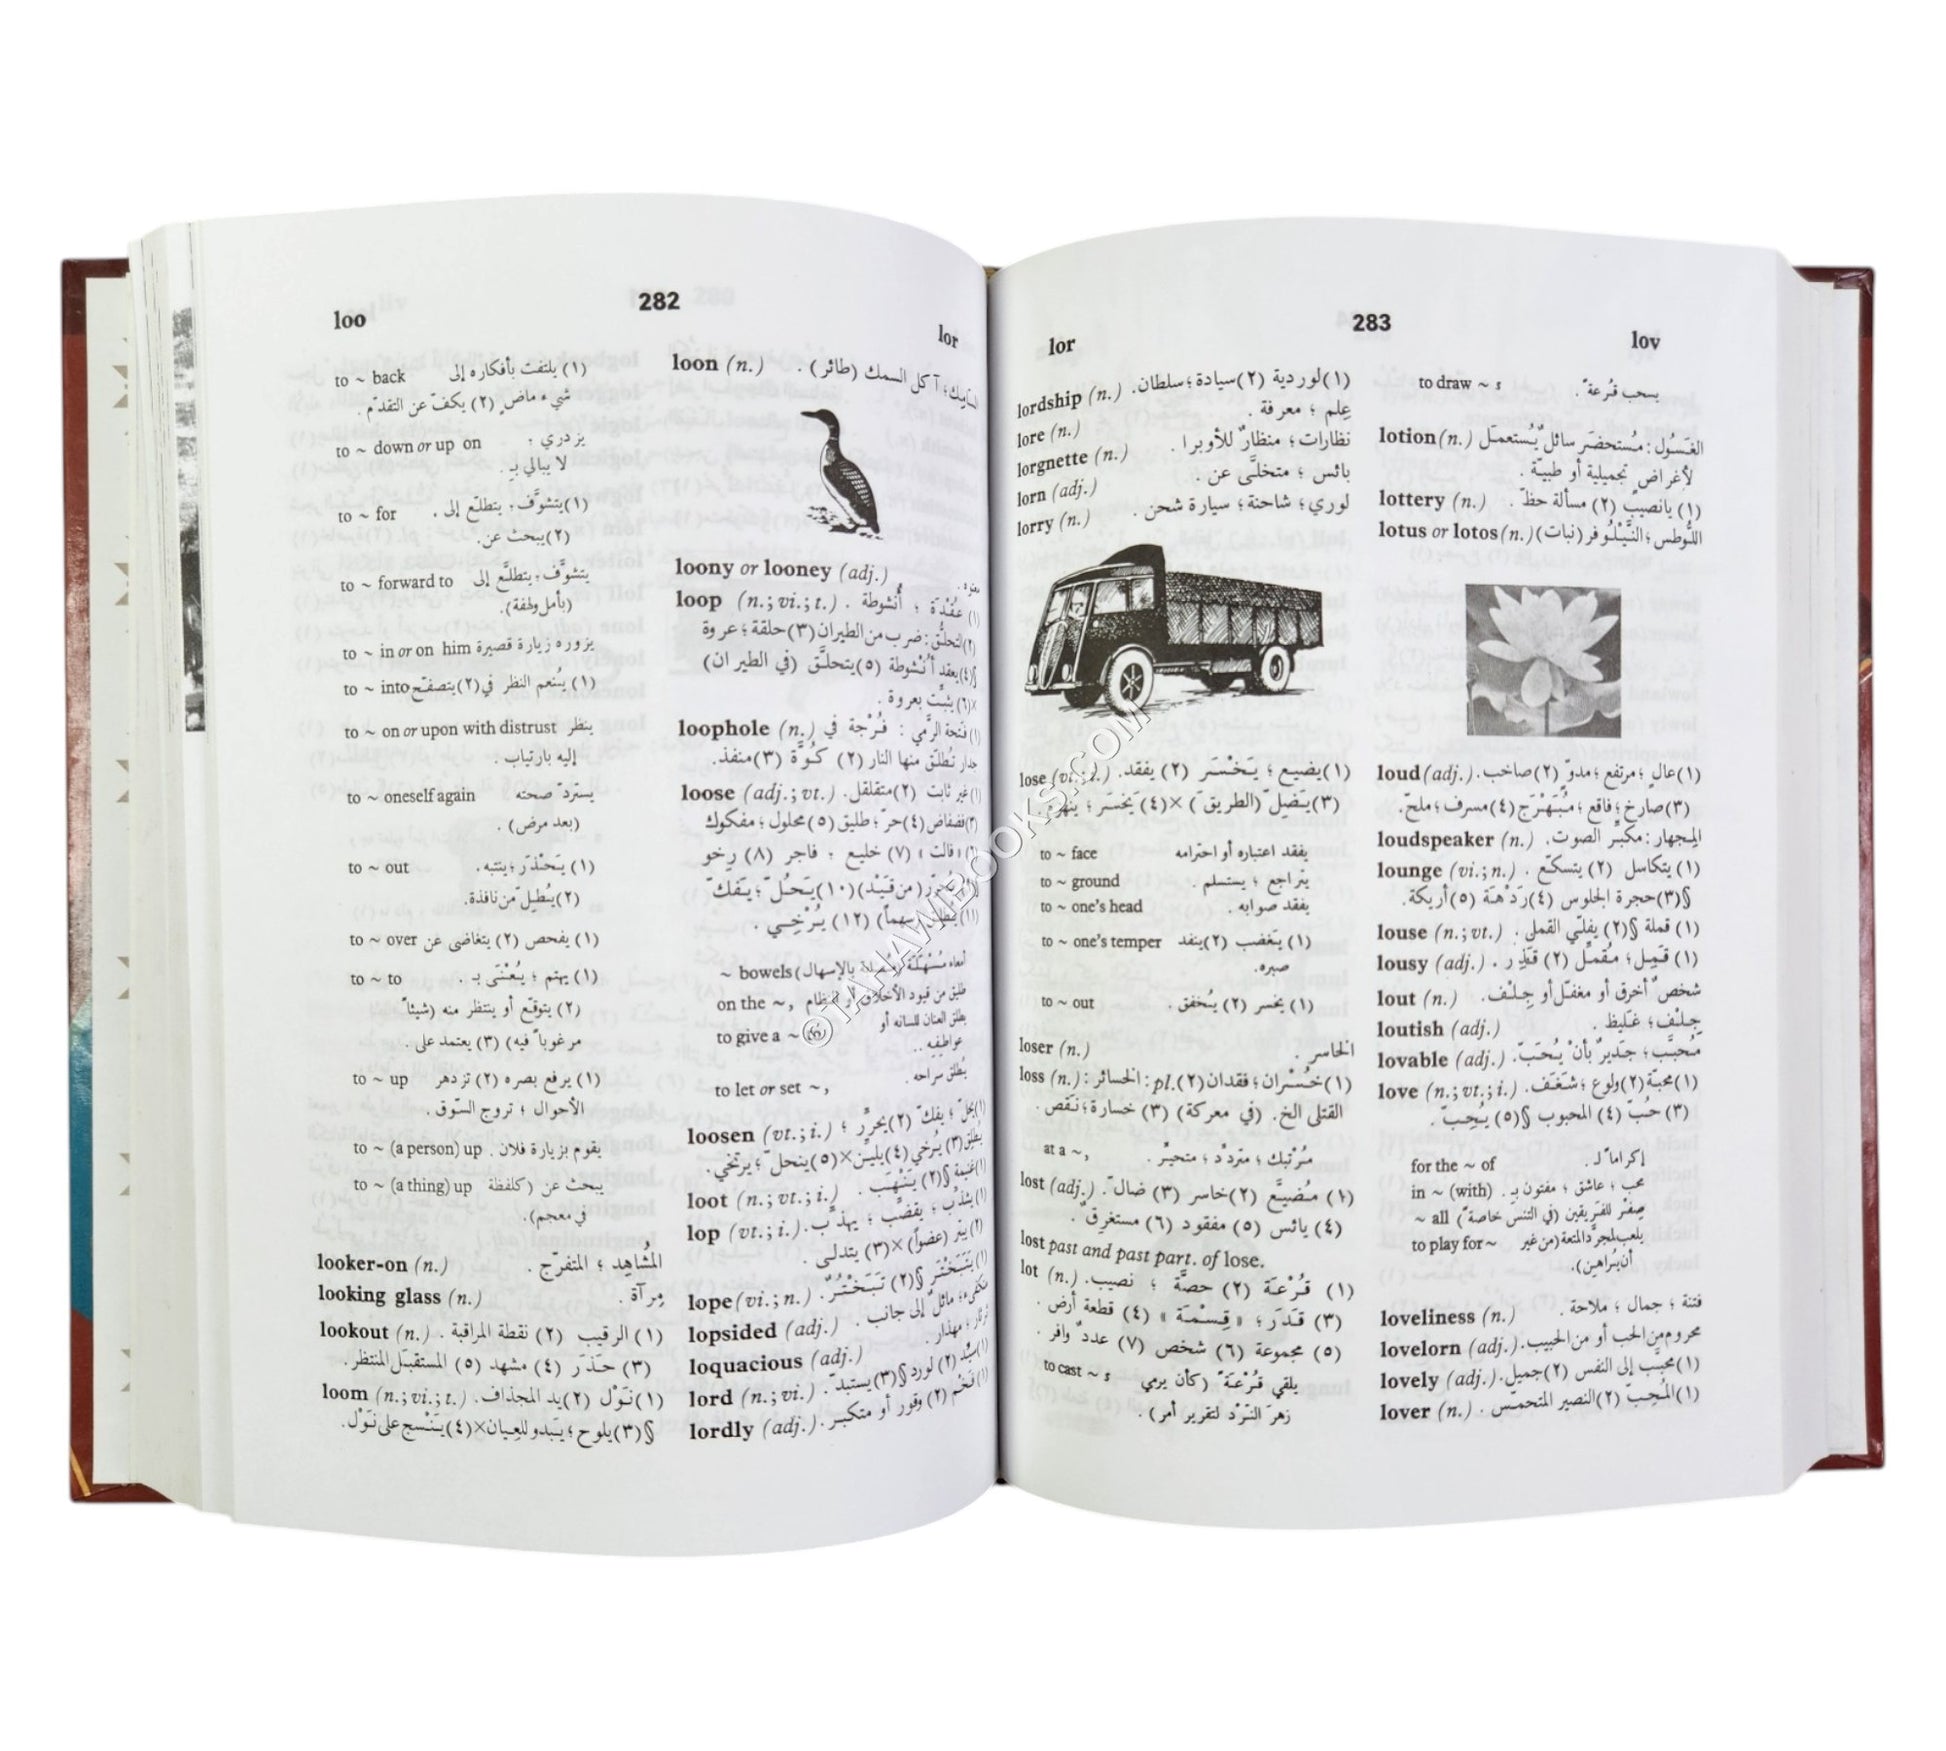 loo
282
lor
to ~ back (١) يلتفت بأفكاره إلى
شيء ماضٍ (٢) يكفّ عن التقدّم .
to ~ down or up on يزدري ؛
لا يبالي بـ.
to ~ for (١)يتشوَّف؛ يتطلّع إلى .
(٢)يبحث عن.
to ~ forward to يتشوَّف؛ يتطلَّع إلى
(بأمل ولهفة).
to ~ in or on him يزوره زيارة قصيرة
to ~ into (١) يُنعم النظر في(٢)يتصفّح
to ~ on or upon with distrust ينظر
إليه بارتياب .
to ~ oneself again يستردّ صحته
(بعد مرض) .
to ~ out (١) يَحْذَر ؛ ينتبه .
(٢)يُطِلّ من نافذة.
to ~ over (١) يفحص (٢) يتغاضى عن
to ~ to (١) يهتم ؛ يُعْنَى بـ .
(٢) يتوقّع أو ينتظر منه (شيئاً
مرغوباً فيه) (٣) يعتمد على .
to ~ up (١) يرفع بصره (٢) تزدهر
الأحوال ؛ تروج السّوق .
to ~ (a person) up يقوم بزيارة فلان .
to ~ (a thing) up يبحث عن (كلفظة
في معجم).
looker-on (n.) المُشاهِد ؛ المتفرّج .
looking glass (n.) مِرآة .
lookout (n.) (١) الرقيب (٢) نقطة المراقبة .
(٣) حَذَر (٤) مشهد (٥) المستقبَل المنتظَر.
loom (n.; vi.; t.) (١) نَوْل (٢) يد المجذاف.
§(٣)يلوح ؛ يَبدو للعِيان×(٤)يَنْسج على نَوْل.
loon (n.) آكل السمك (طائر) .
loony or looney (adj.) معتوه .
loop (n.; vi.; t.) (١) عُقْدَة ؛ أُنشوطة .
(٢)التحلُّق: ضرب من الطيران (٣) حلقة ؛ عروة
§(٤)يعقد أُنْشوطة (٥) يتحلَّق (في الطيران)
×(٦) يثبِّت بعروة .
loophole (n.) (١) فتحة الرَّمي : فُرْجة في
جدار تُطلَق منها النار (٢) كُوَّة (٣)منفذ.
loose (adj.; vt.) (١) غير ثابت (٢)متقلقل.
(٣)فضفاض (٤) حرّ؛ طليق (٥) محلول ؛ مفكوك
(٦) «فالت» (٧) خليع ؛ فاجر (٨) رِخو
§(٩) يُحرِّر (من قَيْد) (١٠) يَحُلّ ؛ يَفُكّ
(١١) يُطلِق (سهماً) (١٢) يُرْخِي .
~ bowels أمعاء مُسْهَلَة (مصابة بالإسهال)
on the ~, طليق من قيود الأخلاق أو النظام
to give a ~ يطلق العنان للسانه أو
عواطفه ..
to let or set ~, يُطلق سراحه .
loosen (vt.; i.) (١)يَحُلّ ؛ يفكّ (٢) يحرِّر ؛
يُطلق(٣)يُرخي (٤)يليّن×(٥)ينحلّ ؛ يرتخي.
loot (n.; vt.; i.) (١)غنيمة §(٢) يَنْهَب .
lop (vt.; i.) (١) يشذّب ؛ يقضِّب ؛ يهذّب .
(٢) يبتر (عضواً) ×(٣) يتدلى .
lope (vi.; n.) (١) يَتَبَخْتَر §(٢) تَبَخْتُر .
lopsided (adj.) متكفىء ؛ مائلٌ إلى جانب .
loquacious (adj.) ثرثار ؛ مهذار .
lord (n.; vi.) (١) سيِّد (٢) لورد §(٣) يستبدّ .
lordly (adj.) (١) فَخْم (٢) وقور أو متكبر .
lor
283
lov
lordship (n.) (١)لوردية (٢)سيادة ؛ سلطان.
lore (n.) عِلم ؛ معرفة .
lorgnette (n.) نظارات ؛ منظارٌ للأوبرا .
lorn (adj.) بائس ؛ متخلَّى عن .
lorry (n.) لوري ؛ شاحنة ؛ سيارة شحن .
lose (vt.; i.) (١)يضيع ؛ يَخْسَر (٢) يفقد.
(٣)يَضِلّ (الطريقَ) ×(٤) يَخسَر ؛ ينهزم.
to ~ face يفقد اعتباره أو احترامه
to ~ ground يتراجع ؛ يستسلم .
to ~ one's head يفقد صوابه .
to ~ one's temper (١) يَغضب (٢)ينفد
صبره.
to ~ out (١) يخسر (٢) يُخفق .
loser (n.) الخاسر .
loss (n.) (١)خُسْران ؛ فقدان (٢).pl: الخسائر :
القتلى الخ. (في معركة) (٣) خسارة ؛ نَقْص.
at a ~, مُرْتبك ؛ متردّد ؛ متحيِّر .
lost (adj.) (١) مُضيَّع (٢) خاسر (٣) ضالّ .
(٤) يائس (٥) مفقود (٦) مستغرِق .
lost past and past part. of lose.
lot (n.) (١) قُرْعَة (٢) حصَّة ؛ نصيب.
(٣) قَدَر ؛ «قِسْمَة» (٤) قطعة أرض .
(٥) مجموعة (٦) شخص (٧) عددٌ وافر .
to cast ~ s يلقي قُرْعَةً (كأن يرمي
زهرَ النَرْد لتقرير أمر) .
to draw ~ s يسحب قُرعةً .
lotion (n.) الغَسُول : مُستحضَر سائلٌ يُستعمَل
لأغراض تجميلية أو طبيّة .
lottery (n.) (١) يانصيب (٢) مسألة حظّ .
lotus or lotos (n.) اللُّوطس ؛ النَّيْلُوفر (نبات)
loud (adj.) (١) عالٍ ؛ مرتفع ؛ مدوٍّ (٢) صاخب.
(٣) صارخ ؛ فاقع ؛ مُبَهْرَج (٤) مسرف ؛ ملحّ.
loudspeaker (n.) المِجهار: مكبِّر الصوت.
lounge (vi.; n.) (١) يتكاسل (٢) يتسكّع .
§(٣)حجرة الجلوس (٤) رَدْهَة (٥) أريكة.
louse (n.; vt.) (١) قملة §(٢) يفلّي القمل .
lousy (adj.) (١) قَمِل ؛ مُقمَّل (٢) قَذِر .
lout (n.) شخصٌ أخرق أو مغفّل أو جِلْف .
loutish (adj.) جِلْف ؛ غليظ .
lovable (adj.) مُحبَّب ؛ جديرٌ بأنْ يُحَبّ .
love (n.; vt.; i.) (١)محبة (٢) ولوع ؛ شَغَف .
(٣) حُبّ (٤) المحبوب §(٥) يُحِبّ .
for the ~ of إكراماً لـ .
in ~ (with) محب ؛ عاشق ؛ مفتون بـ .
~ all صِفْر للفَريقين (في التنس خاصةً)
to play for ~ يلعب لمجرَّد المتعة (من غير
أن يُراهن).
loveliness (n.) فتنة ؛ جمال ؛ ملاحة .
lovelorn (adj.) محروم من الحب أو من الحبيب.
lovely (adj.) (١)محبَّب إلى النفس (٢)جميل.
lover (n.) (١)المُحِبّ (٢)النصير المتحمّس .
©TAHAWIBOOKS.COM